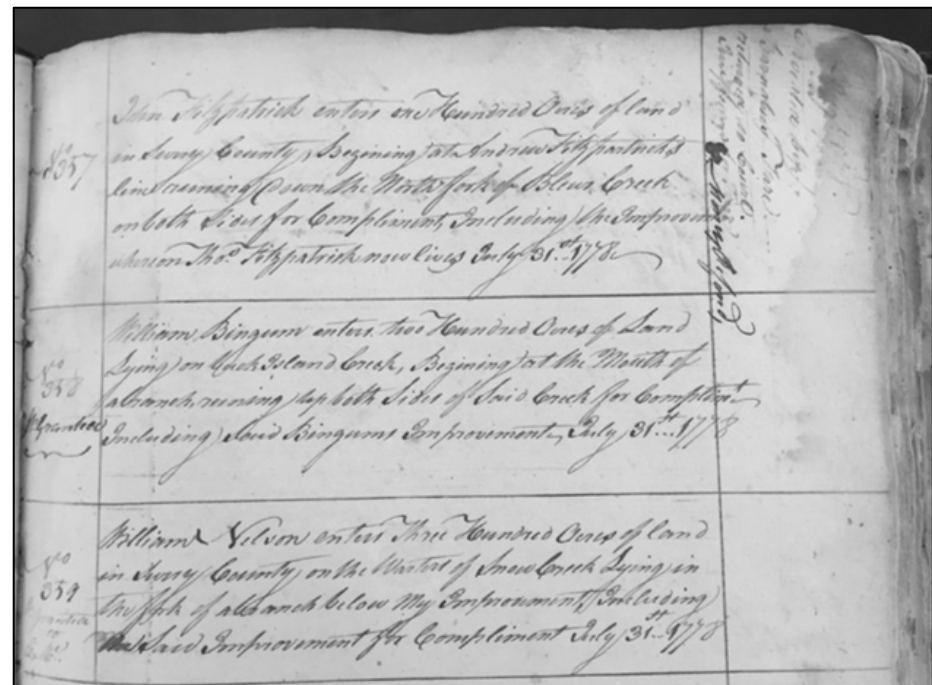 No
357
John Fitzpatrick enters one Hundred Acres of land
in Surry County, Begining at Andrew Fitzpartricks
line runing Down the North fork of Blews Creek
on both Sides for Compliment, Including the Improvem
whereon Thos. Fitzpatrick now lives July 31st 1778
No
358
Grantee
William Bingum enters two Hundred Acres of Land
Lying on Island Creek, Begining at the Mouth of
a branch runing up both Sides of Said Creek for Complimt
Including Said Bingums Improvement, July 31st 1778
No
359
William Nelson enters Three Hundred Acres of land
in Surry County, on the Warters of Snow Creek Lying in
the fork of a branch below My Improvement, Including
Said Improvement for Compliment July 31st 1778